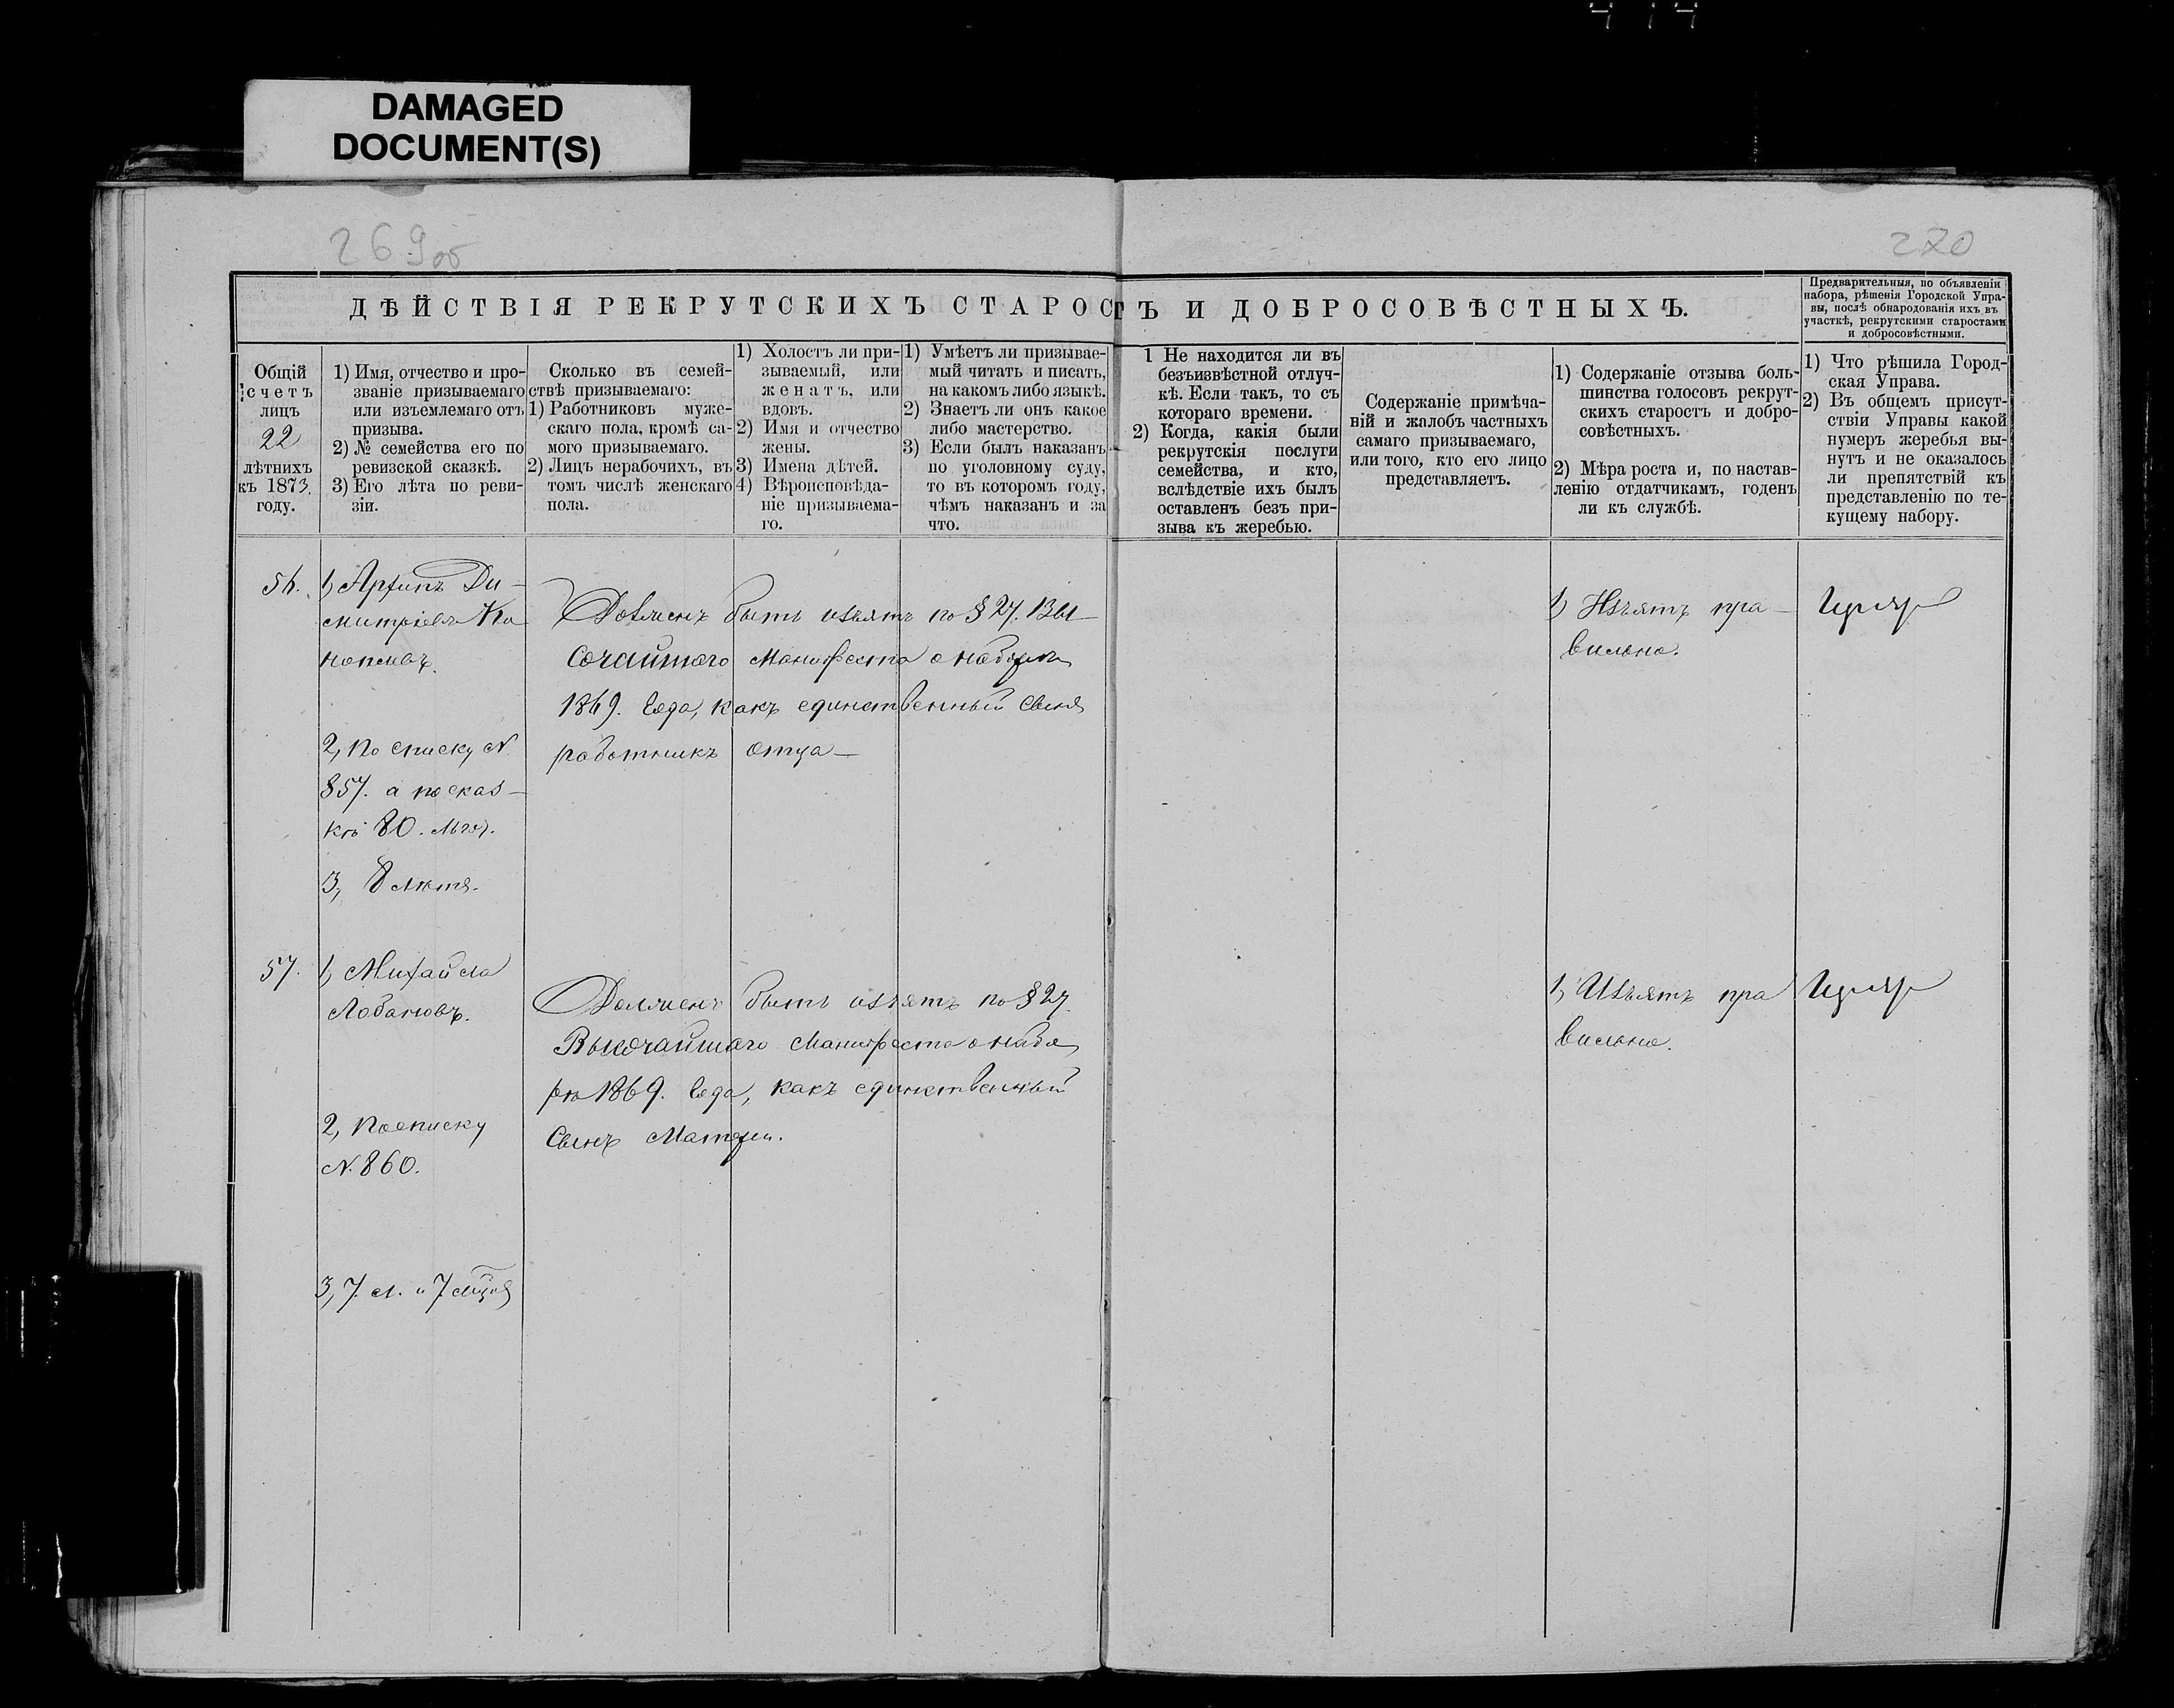 DAMAGED
DOCUMENT(S)
269об
270
ДѢЙСТВІЯ РЕКРУТСКИХЪ СТАРОСТЪ И ДОБРОСОВѢСТНЫХЪ.
Предварительныя, по объявленіи
набора, рѣшенія Городской Упра-
вы, послѣ обнародованія ихъ въ
участкѣ, рекрутскими старостами
и добросовѣстными.
Общій
счетъ
лицъ
22
лѣтнихъ
къ 1873.
году.
1) Имя, отчество и про-
званіе призываемаго
или изъемлемаго отъ
призыва.
2) № семейства его по
ревизской сказкѣ.
3) Его лѣта по реви-
зіи.
Сколько въ семей-
ствѣ призываемаго:
1) Работниковъ муже-
скаго пола, кромѣ са-
мого призываемаго.
2) Лицъ нерабочихъ, въ
томъ числѣ женскаго
пола.
1) Холостъ ли при-
зываемый, или
женатъ, или
вдовъ.
2) Имя и отчество
жены.
3) Имена дѣтей.
4) Вѣроисповѣда-
ніе призываема-
го.
1) Умѣетъ ли призывае-
мый читать и писать,
на какомъ либо языкѣ.
2) Знаетъ ли онъ какое
либо мастерство.
3) Если былъ наказанъ
по уголовному суду,
то въ которомъ году,
чѣмъ наказанъ и за
что.
1 Не находится ли въ
безъизвѣстной отлуч-
кѣ. Если такъ, то съ
котораго времени.
2) Когда, какія были
рекрутскія послуги
семейства, и кто,
вслѣдствіе ихъ былъ
оставленъ безъ при-
зыва къ жеребью.
Содержаніе примѣча-
ній и жалобъ частныхъ
самаго призываемаго,
или того, кто его лицо
представляетъ.
1) Содержаніе отзыва боль-
шинства голосовъ рекрут-
скихъ старостъ и добро-
совѣстныхъ.
2) Мѣра роста и, по настав-
ленію отдатчикамъ, годенъ
ли къ службѣ.
1) Что рѣшила Город-
ская Управа.
2) Въ общемъ присут-
ствіи Управы какой
нумеръ жеребья вы-
нутъ и не оказалось
ли препятствій къ
представленію по те-
кущему набору.
56.
1, Архипъ Ди-
митріевъ
2, По списку №
857. а по сказ-
кѣ 80.
3, 8 лѣтъ.
Долженъ быть изъятъ по § 27. Вы-
сочайшаго Манифеста о наборѣ
1869. года, какъ единственный сынъ
работникъ отца—
1, Изъятъ пра-
вильно.
57.
1, Михайла
Лобановъ.
2, По списку
№ 860.
3, 7. л. и 7.
Долженъ быть изъятъ по § 27.
Высочайшаго Манифеста о набо
рѣ 1869. года, какъ единственный
сынъ Матери.
1, Изъятъ пра
вильно.